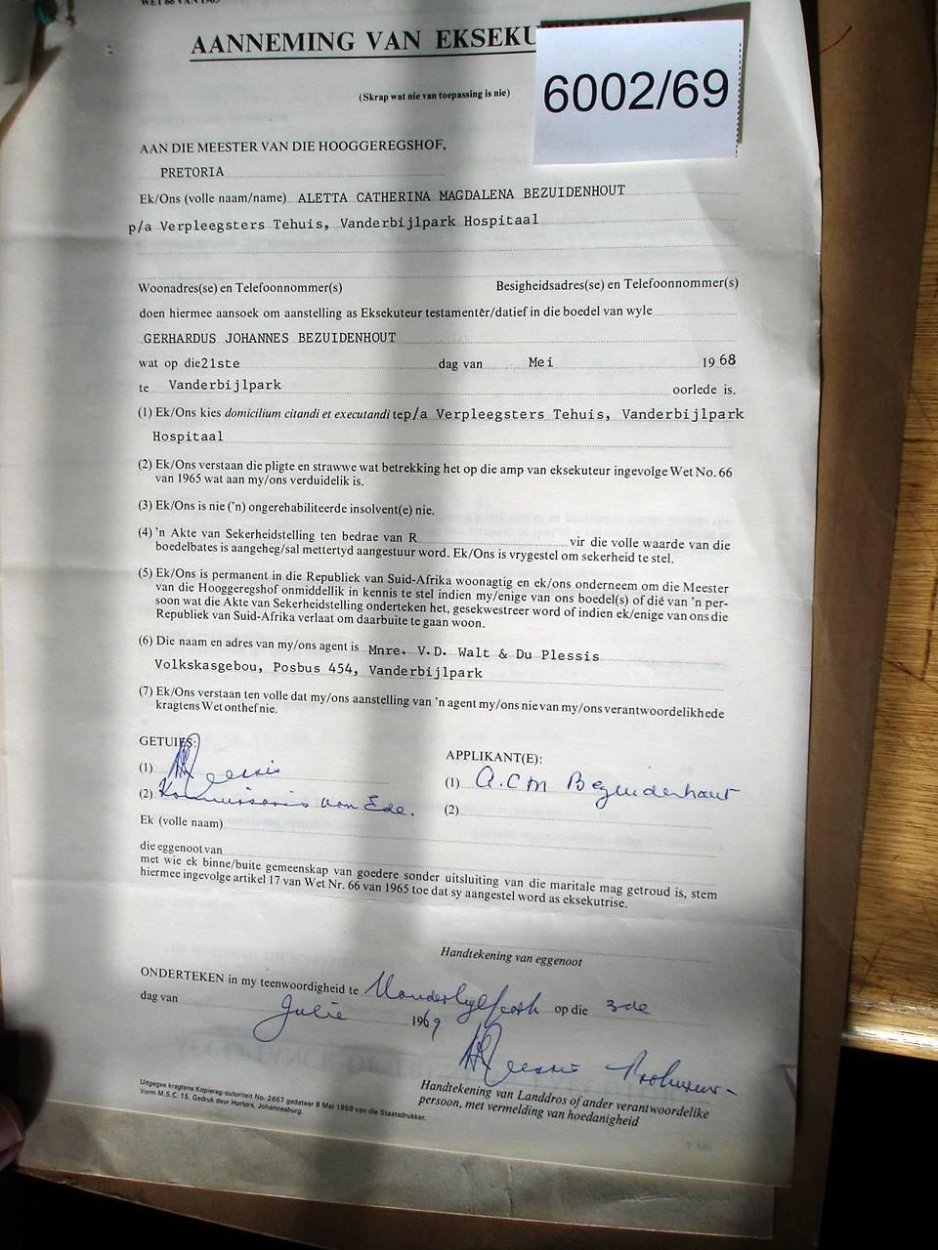 WET 66 VAN 1965
AANNEMING VAN EKSEKU
6002/69
(Skrap wat nie van toepassing is nie)
AAN DIE MEESTER VAN DIE HOOGGEREGSHOF,
PRETORIA
Ek/Ons (volle naam/name) ALETTA CATHERINA MAGDALENA BEZUIDENHOUT
p/a Verpleegsters Tehuis, Vanderbijlpark Hospitaal
Woonadres(se) en Telefoonnommer(s) Besigheidsadres(se) en Telefoonnommer(s)
doen hiermee aansoek om aanstelling as Eksekuteur testamentêr/datief in die boedel van wyle
GERHARDUS JOHANNES BEZUIDENHOUT
wat op die 21ste dag van Mei 1968
te Vanderbijlpark oorlede is.
(1) Ek/Ons kies domicilium citandi et executandi te p/a Verpleegsters Tehuis, Vanderbijlpark
Hospitaal
(2) Ek/Ons verstaan die pligte en strawwe wat betrekking het op die amp van eksekuteur ingevolge Wet No. 66
van 1965 wat aan my/ons verduidelik is.
(3) Ek/Ons is nie ('n) ongerehabiliteerde insolvent(e) nie.
(4) 'n Akte van Sekerheidstelling ten bedrae van R vir die volle waarde van die
boedelbates is aangeheg/sal mettertyd aangestuur word. Ek/Ons is vrygestel om sekerheid te stel.
(5) Ek/Ons is permanent in die Republiek van Suid-Afrika woonagtig en ek/ons onderneem om die Meester
van die Hooggeregshof onmiddellik in kennis te stel indien my/enige van ons boedel(s) of dié van 'n per-
soon wat die Akte van Sekerheidstelling onderteken het, gesekwestreer word of indien ek/enige van ons die
Republiek van Suid-Afrika verlaat om daarbuite te gaan woon.
(6) Die naam en adres van my/ons agent is Mnre. V.D. Walt & Du Plessis
Volkskasgebou, Posbus 454, Vanderbijlpark
(7) Ek/Ons verstaan ten volle dat my/ons aanstelling van 'n agent my/ons nie van my/ons verantwoordelikhede
kragtens Wet onthef nie.
GETUIES: APPLIKANT(E):
(1) (1) A.C.M Bezuidenhout
(2) Kommissaris van Ede. (2)
Ek (volle naam)
die eggenoot van
met wie ek binne/buite gemeenskap van goedere sonder uitsluiting van die maritale mag getroud is, stem
hiermee ingevolge artikel 17 van Wet Nr. 66 van 1965 toe dat sy aangestel word as eksekutrise.
Handtekening van eggenoot
ONDERTEKEN in my teenwoordigheid te Vanderbylpark op die 3de
dag van Julie 1969
Handtekening van Landdros of ander verantwoordelike
persoon, met vermelding van hoedanigheid
Uitgegee kragtens Kopiereg-outoriteit No. 2667 gedateer 8 Mei 1959 van die Staatsdrukker.
Vorm M.S.C. 15. Gedruk deur Hortors, Johannesburg.